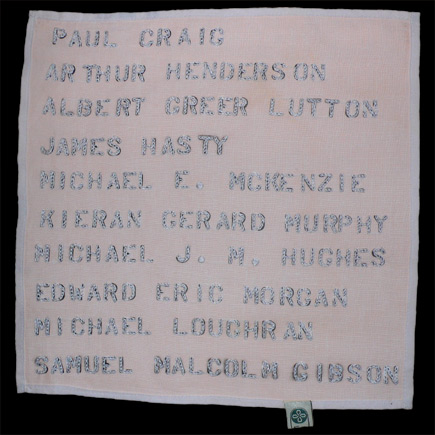 PAUL CRAIG
ARTHUR HENDERSON
ALBERT GREER LUTTON
JAMES HASTY
MICHAEL E. MCKENZIE
KIERAN GERARD MURPHY
MICHAEL J. M. HUGHES
EDWARD ERIC MORGAN
MICHAEL LOUGHRAN
SAMUEL MALCOLM GIBSON